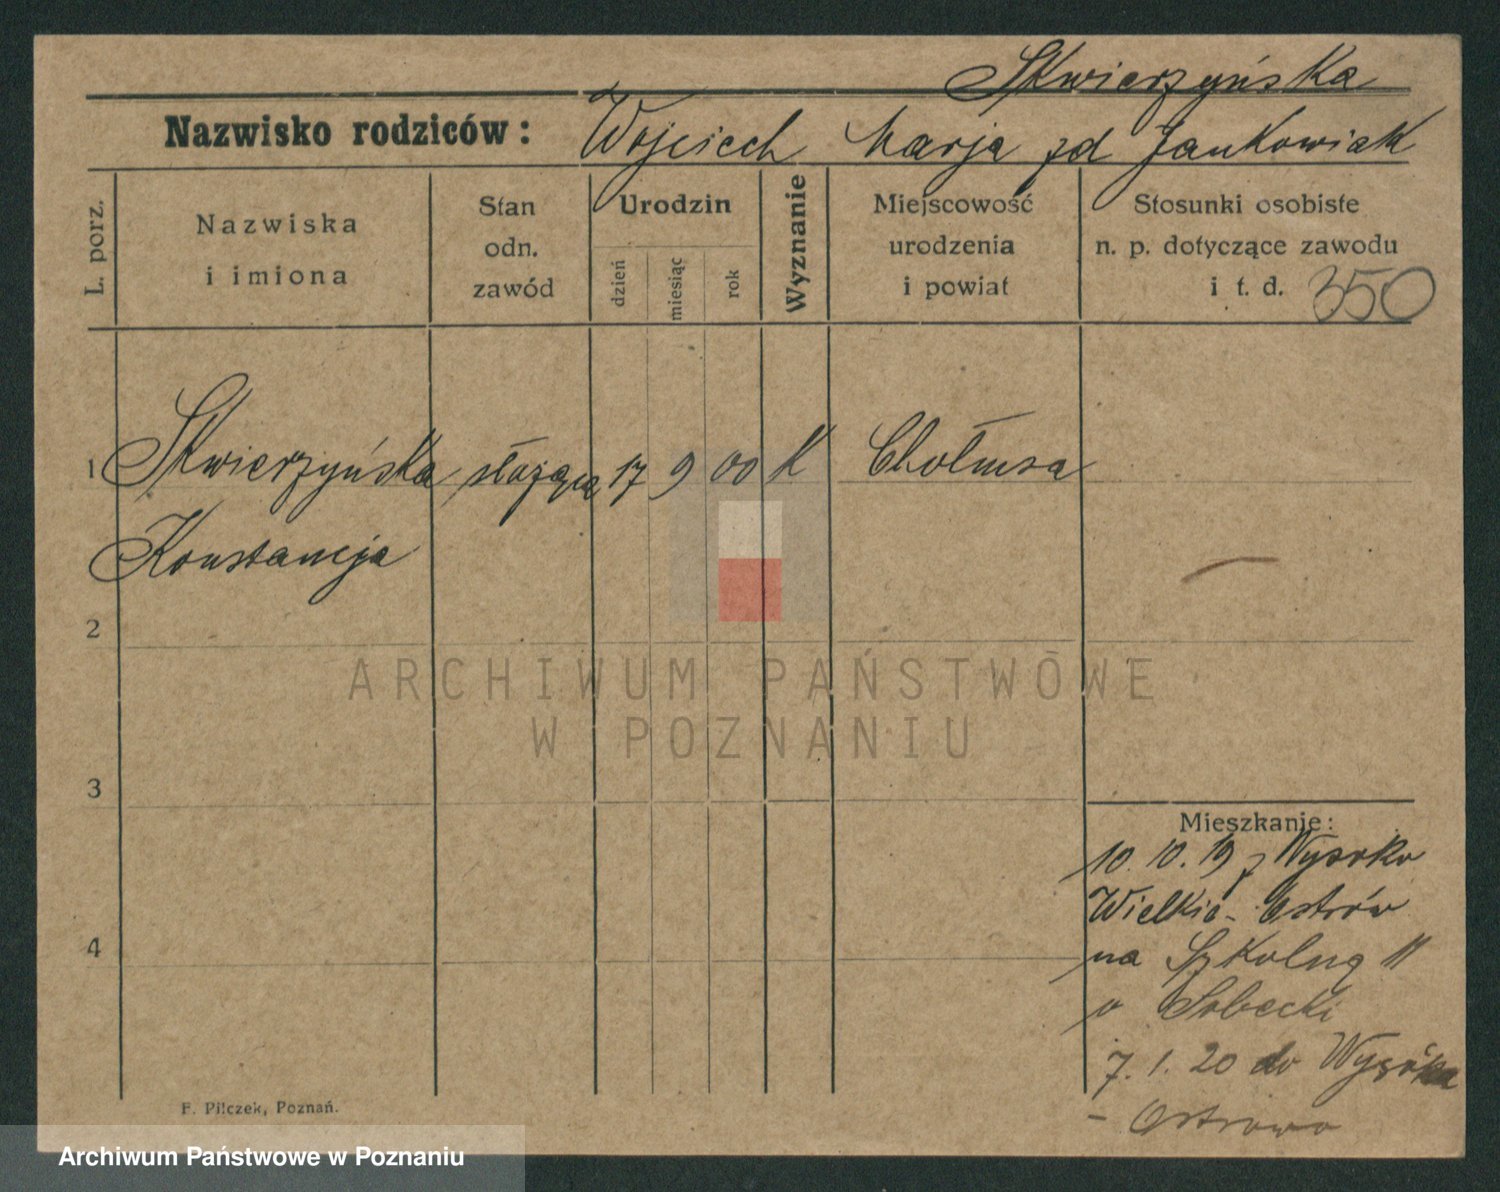 Skwierzyńska
Nazwisko rodziców: Wojciech Marja zd Jankowiak
L. porz.
Nazwiska
i imiona
Stan
odn.
zawód
Urodzin
dzień
miesiąc
rok
Wyznanie
Miejscowość
urodzenia
i powiat
Stosunki osobiste
n. p. dotyczące zawodu
i t. d. 350
1 Skwierzyńska służąca 17 9 00 K
Konstancja
2
ARCHIWUM PAŃSTWOWE
W POZNANIU
3
Mieszkanie:
10.10.19 z Wysoko
Wielkie - Ostrów
na Szkolną 11
Sobecki
4
7.1.20 do
- Ostrowo
F. Pilczek, Poznań.
Archiwum Państwowe w Poznaniu